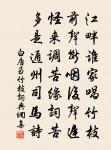 江畔誰家唱竹枝
前聲斷咽後聲遲
怪來調苦緣詞苦
多是通州司馬詩
白居易竹枝詞